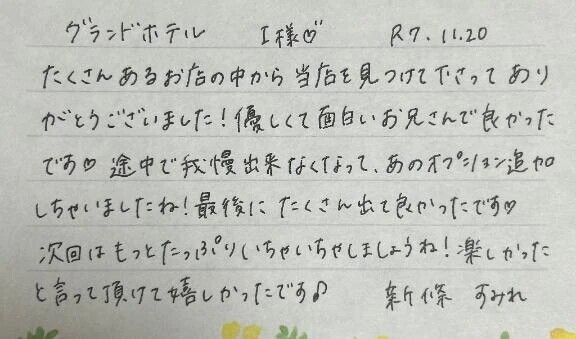 グランドホテル I様♡ R7.11.20
たくさんあるお店の中から当店を見つけて下さってあり
がとうございました！優しくて面白いお兄さんで良かった
です♡ 途中で我慢出来なくなって、あのオプション追加
しちゃいましたね！最後に たくさん出て良かったです♡
次回はもっとたっぷりいちゃいちゃしましょうね！楽しかった
と言って頂けて嬉しかったです♪ 新條 すみれ